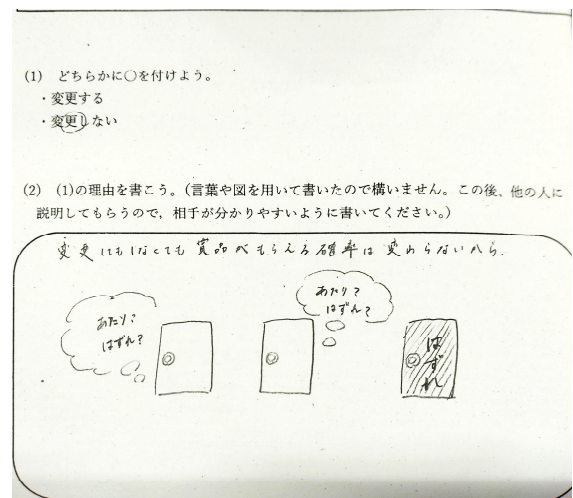 (1) どちらかに○を付けよう。
・変更する
・変更しない
(2) (1)の理由を書こう。(言葉や図を用いて書いたので構いません。この後、他の人に
説明してもらうので，相手が分かりやすいように書いてください。)
変更してもしなくても賞品がもらえる確率は変わらないから.
あたり?
はずれ?
あたり?
はずれ?
はずれ